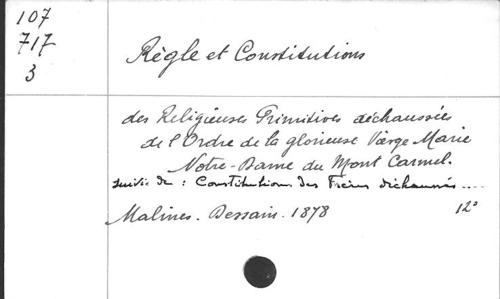 107
717
3
Règle et Constitutions
des Religieuses Primitives déchaussées
de l'Ordre de la glorieuse Vierge Marie
Notre-Dame du Mont Carmel.
suivie de : Constitutions des Frères déchaussés....
Malines. Dessain. 1878 12°